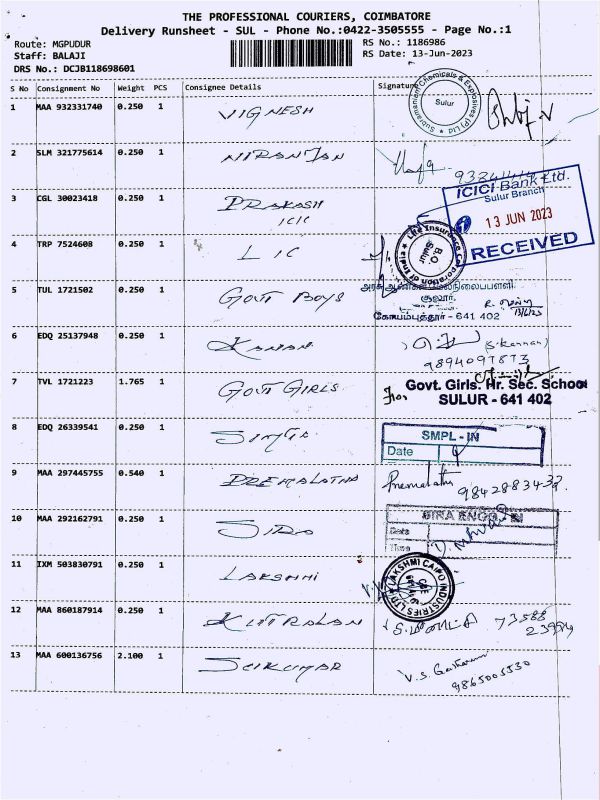 THE PROFESSIONAL COURIERS, COIMBATORE
Delivery Runsheet - SUL - Phone No.:0422-3505555 - Page No.:1
Route: MGPUDUR
RS No.: 1186986
Staff: BALAJI
RS Date: 13-Jun-2023
DRS No.: DCJB118698601
S No Consignment No Weight PCS Consignee Details Signature
1 MAA 932331740 0.250 1 VIGNESH
Subramaniam Chemicals & Explosives (P) Ltd
Sulur
2 SLM 321775614 0.250 1 NIRANJAN
3 CGL 30023418 0.250 1 PRAKASH
ICIC
ICICI Bank Ltd.
Sulur Branch
13 JUN 2023
RECEIVED
4 TRP 7524608 0.250 1 LIC
Life Insurance Corporation of India
B.O.
Sulur
5 TUL 1721502 0.250 1 GOVT BOYS
சூலூர்,
கோயம்புத்தூர் - 641 402
6 EDQ 25137948 0.250 1 KANAN
(S.Kannan)
9894097873
7 TVL 1721223 1.765 1 GOVT GIRLS
For Govt. Girls. Hr. Sec. School
SULUR - 641 402
8 EDQ 26339541 0.250 1
SMPL - IN
Date
9 MAA 297445755 0.540 1 PREMALATHA
Premalatha
98428834
10 MAA 292162791 0.250 1
Date
Time
11 IXM 503830791 0.250 1 LAKSHMI
LAKSHMI CAIPO INDUSTRIES LTD
12 MAA 860187914 0.250 1
73588
23994
13 MAA 600136756 2.100 1 SELKUMAR
9865005530